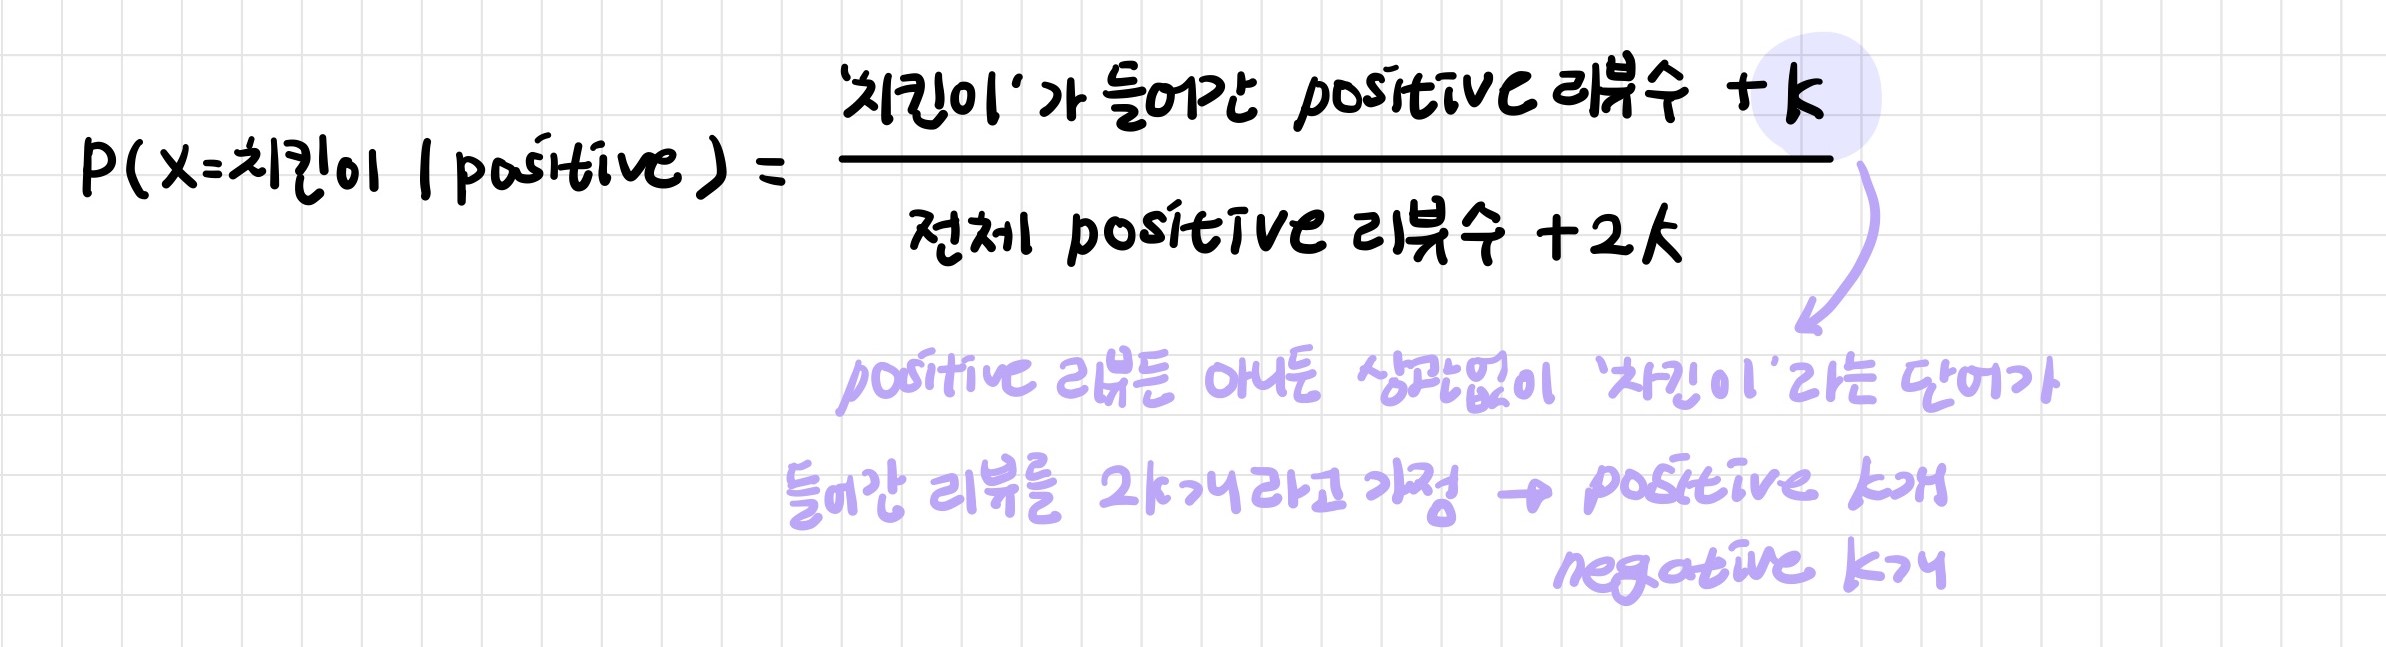 '치킨이'가 들어간 positive 리뷰수 + k
P(X=치킨이 | positive) =
전체 positive 리뷰수 + 2k
positive 리뷰든 아니든 상관없이 '치킨이'라는 단어가
들어간 리뷰를 2k개라고 가정 → positive k개
negative k개